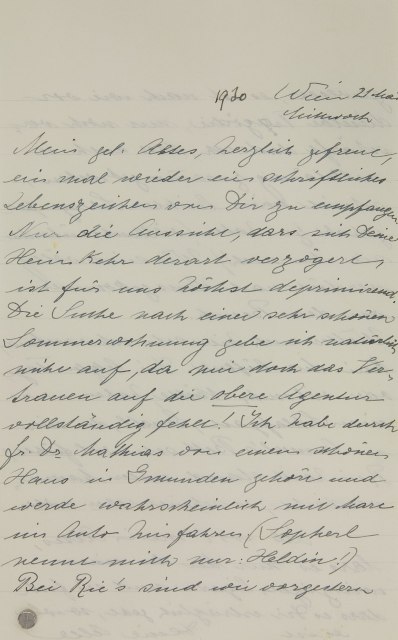 1930 Wien 21 Mai
Mittwoch
Mein gel. Altes, herzlich gefreut,
ein mal wieder ein schriftliches
Lebenszeichen von Dir zu empfangen
Nur die Aussicht, dass sich Deine
Heim Kehr derart verzögert,
ist für uns höchst deprimirend.
Die Suche nach einer sehr schönen
Sommerwohnung gebe ich natürlich
nicht auf, da mir doch das Ver-
trauen auf die obere Agentur
vollständig fehlt! Ich habe durch
fr. Dr Mathias von einem schönen
Haus in Gmunden gehört und
werde wahrscheinlich mit
im Auto hinfahren (Sopherl
nennt mich nur: Heldin!)
Bei Rie's sind wir vorgestern